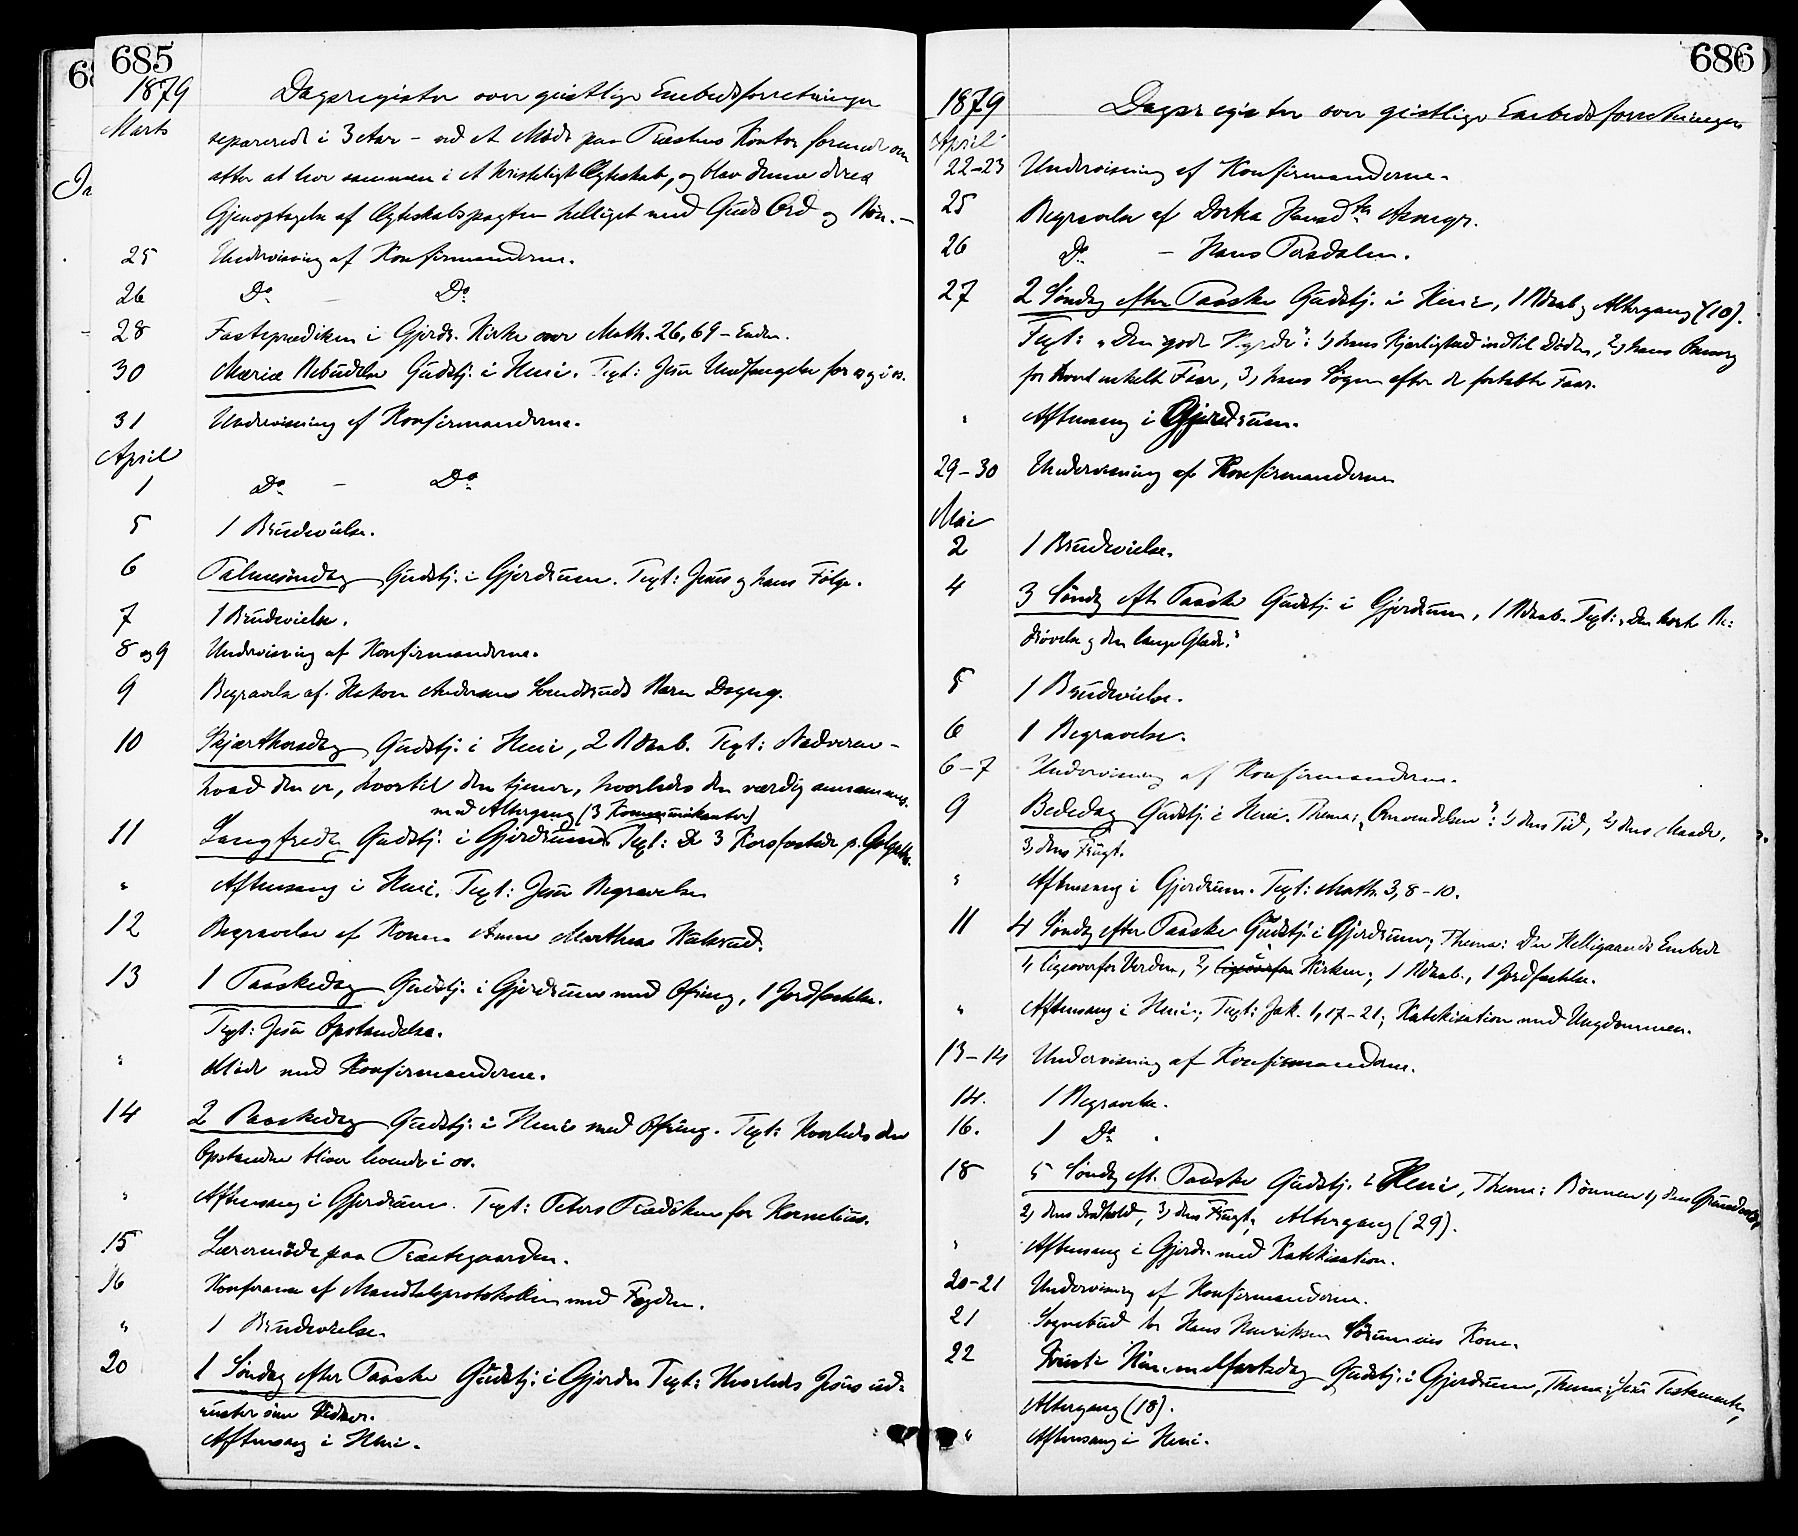 685
1879 Dagsregister over geistlige Embedsforretninger
Marts separerede i 3 Aar – ved et Møde paa Præstens Kontor forenede om
atter at leve sammen i et kristeligt Ægteskab, og blev denne deres
Gjenoptagelse af Ægteskabspagten helliget med Guds Ord og Bøn. –
25 Undervisning af Konfirmanderne.
26 Do – Do
28 Fasteprædiken i Gjerdr. Kirke over Math. 26,69 – Enden.
30 Mariæ Bebudelse Gudstj. i Heni. Text: Jesu Undfangelse for og i os.
31 Undervisning af Konfirmanderne.
April
1 Do – Do
5 1 Brudevielse.
6 Palmesøndag Gudstj. i Gjerdrum. Text: Jesus og hans Følge.
7 1 Brudevielse.
8 og 9 Undervisning af Konfirmanderne.
9 Begravelse af Hakon Andersens Barn Dagny.
10 Skjærthorsdag Gudstj. i Heni, 2 Bdaab. Text: Nadveren –
hvad den er, hvortil den tjener, hvorledes den værdig annammes.
med Altergang (3 Kommunikanter)
11 Langfredag Gudstj. i Gjerdrum Text: De 3 Korsfæstede p. Golgatha.
" Aftensang i Heni. Text: Jesu Begravelse
12 Begravelse af Konen Anne Marthea
13 1 Paaskedag Gudstj. i Gjerdrum med Ofring, 1 Jordfæstelse.
Text: Jesu Opstandelse.
" Møde med Konfirmanderne.
14 2 Paaskedag Gudstj. i Heni med Ofring. Text: Hvorledes den
Opstandne bliver levende i os.
" Aftensang i Gjerdrum. Text: Peters Prædiken for Kornelius.
15 Lærermøde paa Præstegaarden.
16 Konferance af Mandtalsprotokollen med Fogden.
" 1 Brudevielse.
20 1 Søndag efter Paaske Gudstj. i Gjerdr. Text: Hvorledes Jesus ud-
ruster sine Vidner.
Aftensang i Heni.
686
1879 Dagsregister over geistlige Embedsforretninger
April
22–23 Undervisning af Konfirmanderne.
25 Begravelse af Dorthea Hansdtr
26 Do – Hans
27 2 Søndag efter Paaske Gudstj. i Heni, 1 Bdaab og Altergang (10).
Text: "Den gode Hyrde": 1) hans Kjærlighed indtil Døden, 2) hans Omsorg
for hvert enkelt Faar, 3, hans Søgen efter de fortabte Faar.
" Aftensang i Gjerdrum.
29–30 Undervisning af Konfirmanderne
Mai
2 1 Brudevielse.
4 3 Søndag eft. Paaske Gudstj. i Gjerdrum, 1 Bdaab. Text: "Den korte Be-
drøvelse og den lange Glæde."
5 1 Brudevielse.
6 1 Begravelse.
6–7 Undervisning af Konfirmanderne.
9 Bededag Gudstj. i Heni. Thema: "Omvendelsen": 1) dens Tid, 2) dens Maade,
3, dens Frugt.
" Aftensang i Gjerdrum. Text: Math. 3,8–10.
11 4 Søndag efter Paaske Gudstj. i Gjerdrum; Thema: Den Helligaands Embede
1, ligeoverfor Verden, 2, ligeoverfor Kirken; 1 Bdaab., 1 Jordfæstelse.
" Aftensang i Heni; Text: Jak. 1,17–21; Katekisation med Ungdommen.
13–14 Undervisning af Konfirmanderne.
14. 1 Begravelse.
16. 1 Do
18 5 Søndag eft. Paaske Gudstj. i Heni, Thema: Bønnen 1, dens Grundvold,
2, dens Indhold, 3, dens Frugt; Altergang (29).
" Aftensang i Gjerdr. med Katekisation.
20–21 Undervisning af Konfirmanderne.
21 Sognebud til Hans Henriksen Kone.
22 Kristi Himmelfartsdag Gudstj. i Gjerdrum, Thema: Jesu Testamente,
Altergang (18).
" Aftensang i Heni.